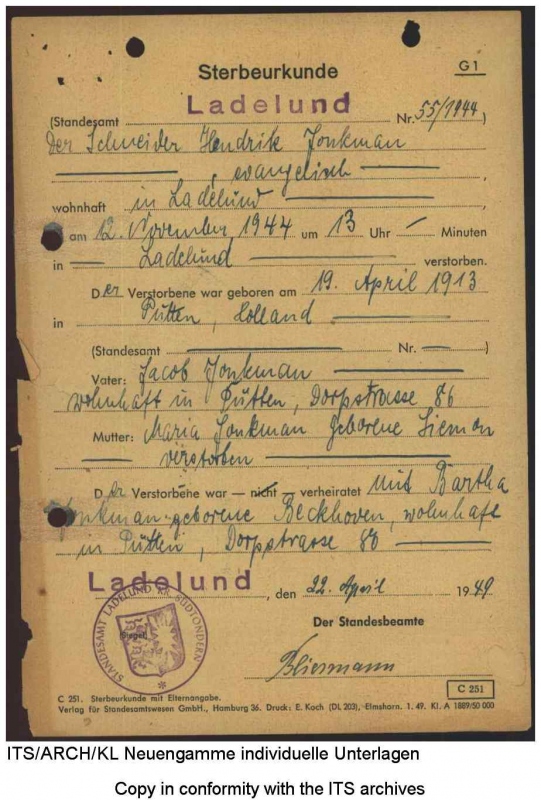 Sterbeurkunde
G 1
Ladelund
(Standesamt Nr. 55/1944)
Der Schneider Hendrik Jonkman
, evangelisch
wohnhaft in Ladelund
am 12. November 1944 um 13 Uhr — Minuten
in — Ladelund verstorben.
Der Verstorbene war geboren am 19. April 1913
in Putten, Holland
(Standesamt — Nr. —)
Vater: Jacob Jonkman
wohnhaft in Putten, Dorpstrasse 86
Mutter: Maria Jonkman geborene Siemon
— verstorben —
Der Verstorbene war — nicht — verheiratet mit Bartha
Jonkman geborene Beckhoven, wohnhaft
in Putten, Dorpstrasse 86
Ladelund, den 22. April 1949
STANDESAMT LADELUND KR. SÜDTONDERN
(Siegel)
Der Standesbeamte
C 251
C 251. Sterbeurkunde mit Elternangabe.
Verlag für Standesamtswesen GmbH., Hamburg 36. Druck: E. Koch (DL 203), Elmshorn. 1. 49. Kl. A 1889/50 000
ITS/ARCH/KL Neuengamme individuelle Unterlagen
Copy in conformity with the ITS archives